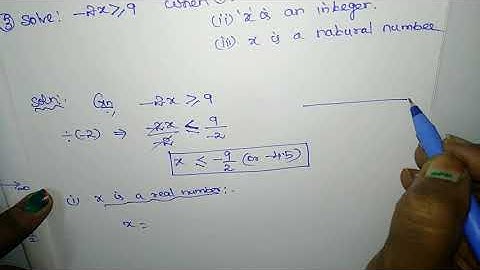 ③ Solve: -2x ≥ 9 when
(ii) 'x' is an integer.
(iii) x is a natural number
Soln: Gn, -2x ≥ 9
÷(-2) ⇒ -2x/-2 ≤ 9/-2
x ≤ -9/2 (or -4.5)
(i) x is a real number:-
x =